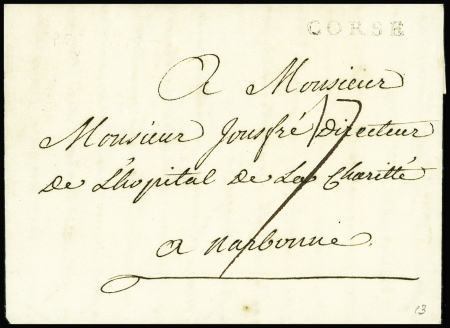 CORSE
A Monsieur
Monsieur Jousfré Directeur
De L'hopital de La Charitté
a narbonne
13